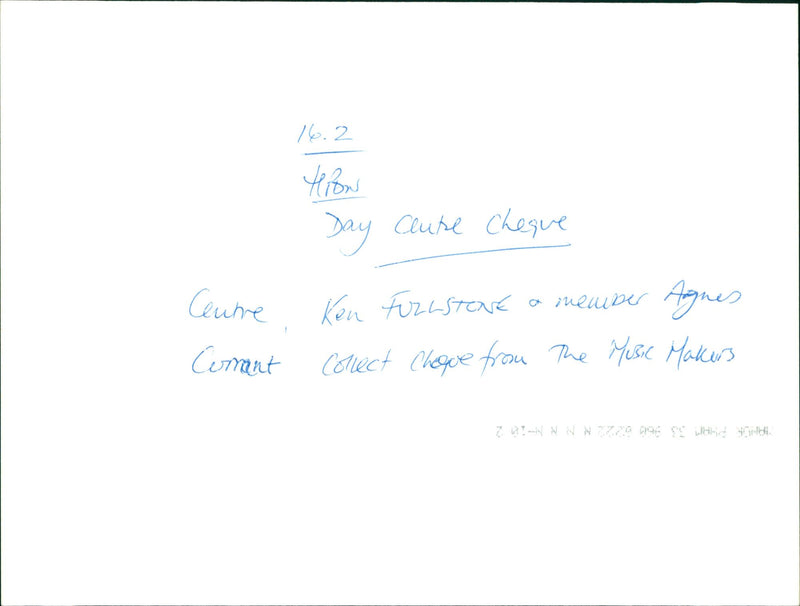 16.2
Day Centre Cheque
Centre, Ken FULLSTONE & member Agnes
Currant collect cheque from The Music Makers